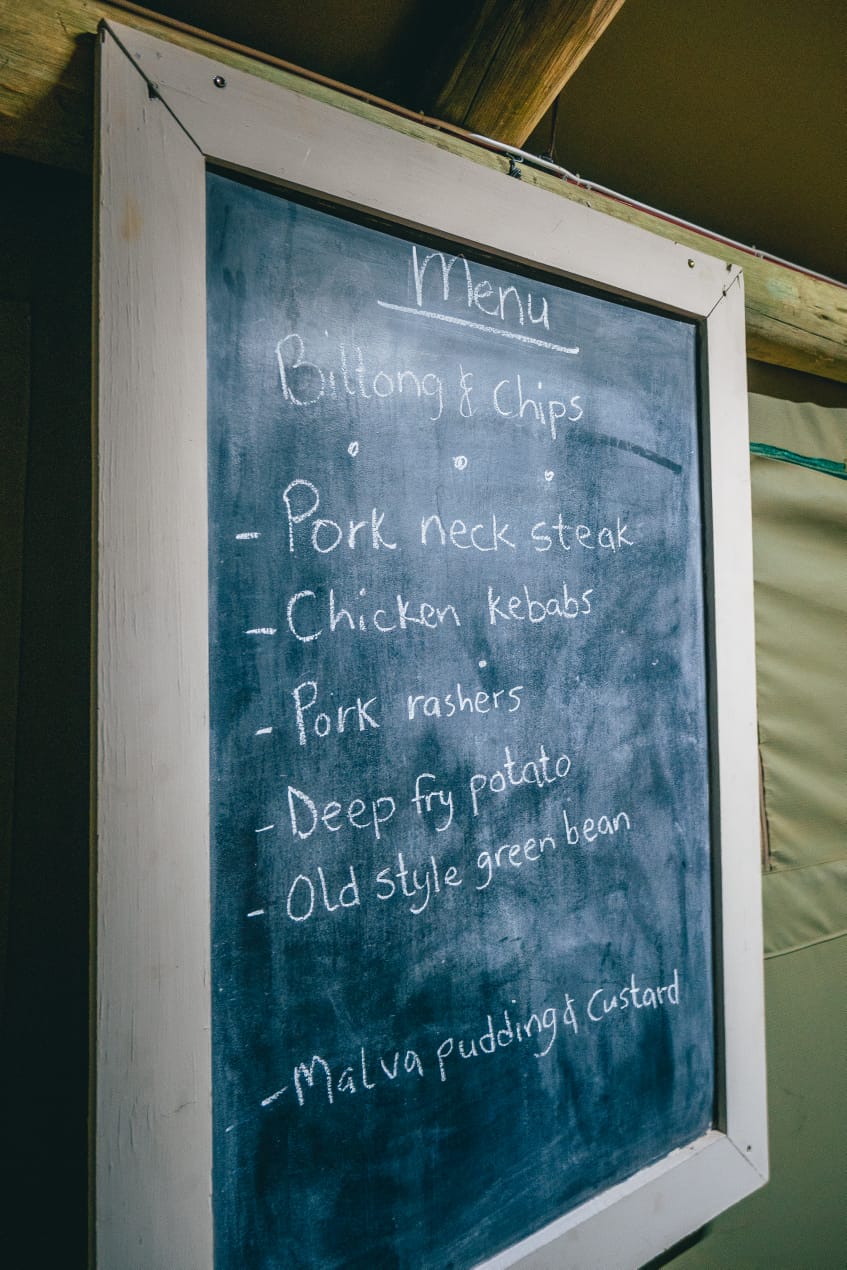 Menu
Biltong & chips
- Pork neck steak
- Chicken kebabs
- Pork rashers
- Deep fry potato
- Old style green bean
- Malva pudding & custard